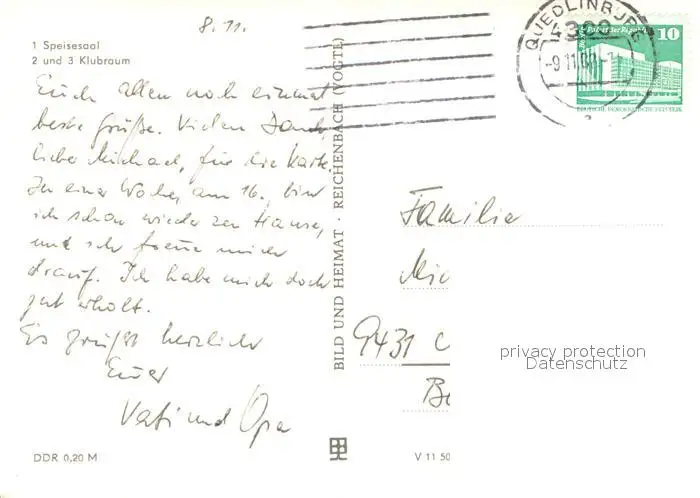 8. 11.
1 Speisesaal
2 und 3 Klubraum
Euch allen noch einmal
beste Grüße. Vielen Dank,
lieber Michael, für die Karte.
In einer Woche, am 16., bin
ich schon wieder zu Hause,
und ich freue mich
drauf. Ich habe mich doch
gut erholt.
Es grüßt herzlich
Euer
Vati und Opa
DDR 0,20 M
BILD UND HEIMAT · REICHENBACH (VOGTL)
V 11 50
QUEDLINBURG
4300
-9.11.80
Palast der Republik
10
DEUTSCHE DEMOKRATISCHE REPUBLIK
Familie
9431
privacy protection
Datenschutz